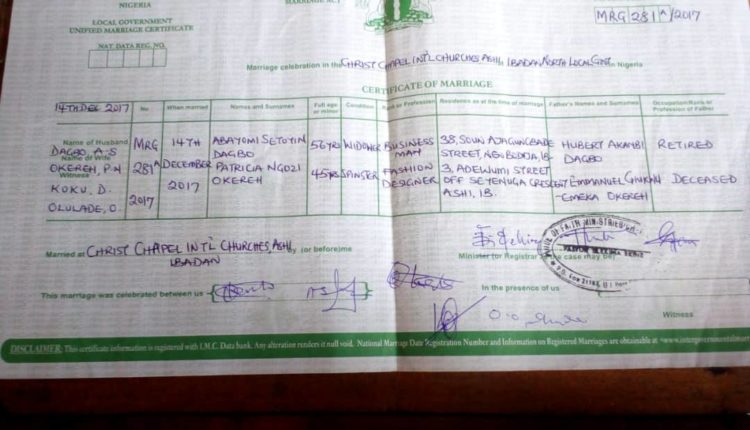 NIGERIA
MARRIAGE ACT
LOCAL GOVERNMENT
UNIFIED MARRIAGE CERTIFICATE
NAT. DATA REG. NO.
MRG 281A/2017
Marriage celebration in the CHRIST CHAPEL INT'L CHURCHES, ASHI, IBADAN NORTH LOCAL GOVT in Nigeria
CERTIFICATE OF MARRIAGE
14TH DEC 2017 No When married Names and Surnames Full age or minor Condition Rank or Profession Residence as at the time of marriage Father's Names and Surnames Occupation/Rank or Profession of Father
Name of Husband
DAGBO, A.S MRG 281A 2017 14TH DECEMBER 2017 ABAYOMI SETOYIN DAGBO 56YRS WIDOWER BUSINESS MAN 38, SOUN AJAGUNGBADE STREET, NEW BODIJA, IB. HUBERT AKAMBI DAGBO RETIRED
Name of Wife
OKEREH, P.N PATRICIA NGOZI OKEREH 45YRS SPINSTER FASHION DESIGNER 3, ADEWUMI STREET OFF SEYENUGA CRESCENT ASHI, IB. EMMANUEL EMEKA OKEREH DECEASED
Witness
KOKU. D.
OLULADE, O.
Married at CHRIST CHAPEL INT'L CHURCHES, ASHI, IBADAN by (or before) me
Minister (or Registrar as the case may be)
This marriage was celebrated between us
In the presence of us
Witness
DISCLAIMER: This certificate information is registered with I.M.C. Data bank. Any alteration renders it null void. National Marriage Date Registration Number and Information on Registered Marriages are obtainable at